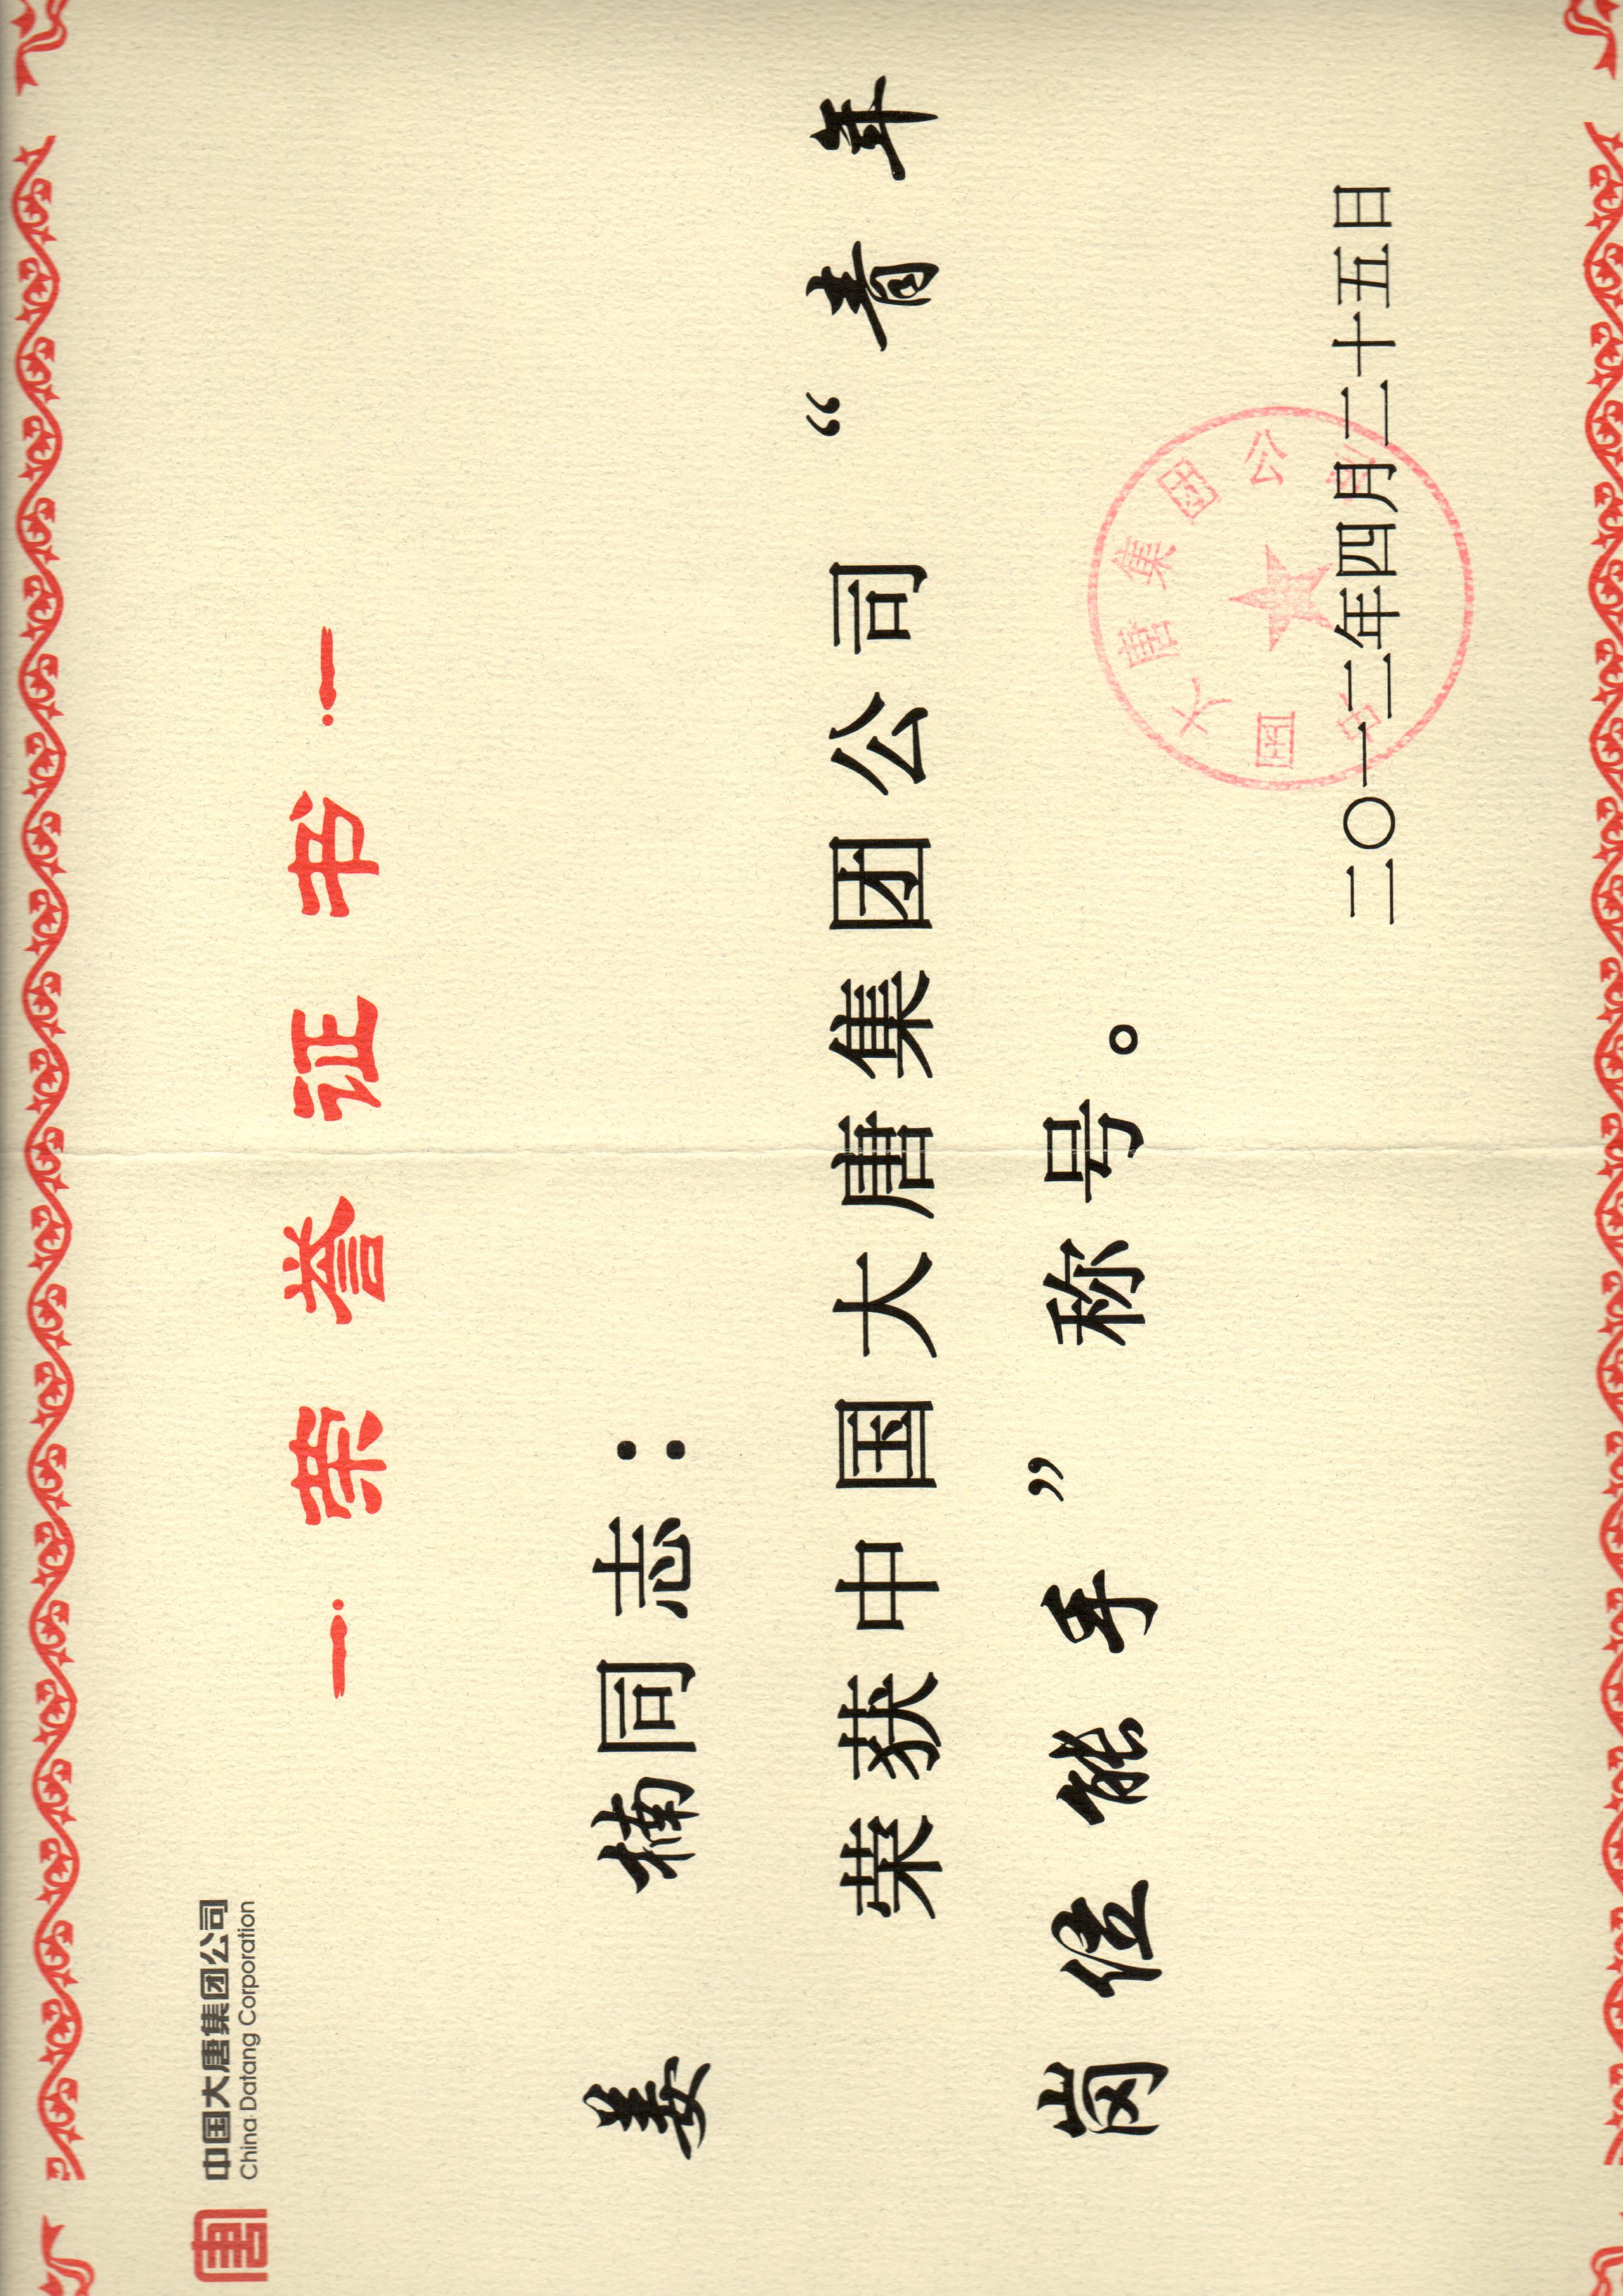 中国大唐集团公司
China Datang Corporation
荣誉证书
姜楠同志：
荣获中国大唐集团公司“青年
岗位能手”称号。
中国大唐集团公司
二〇一二年四月二十五日